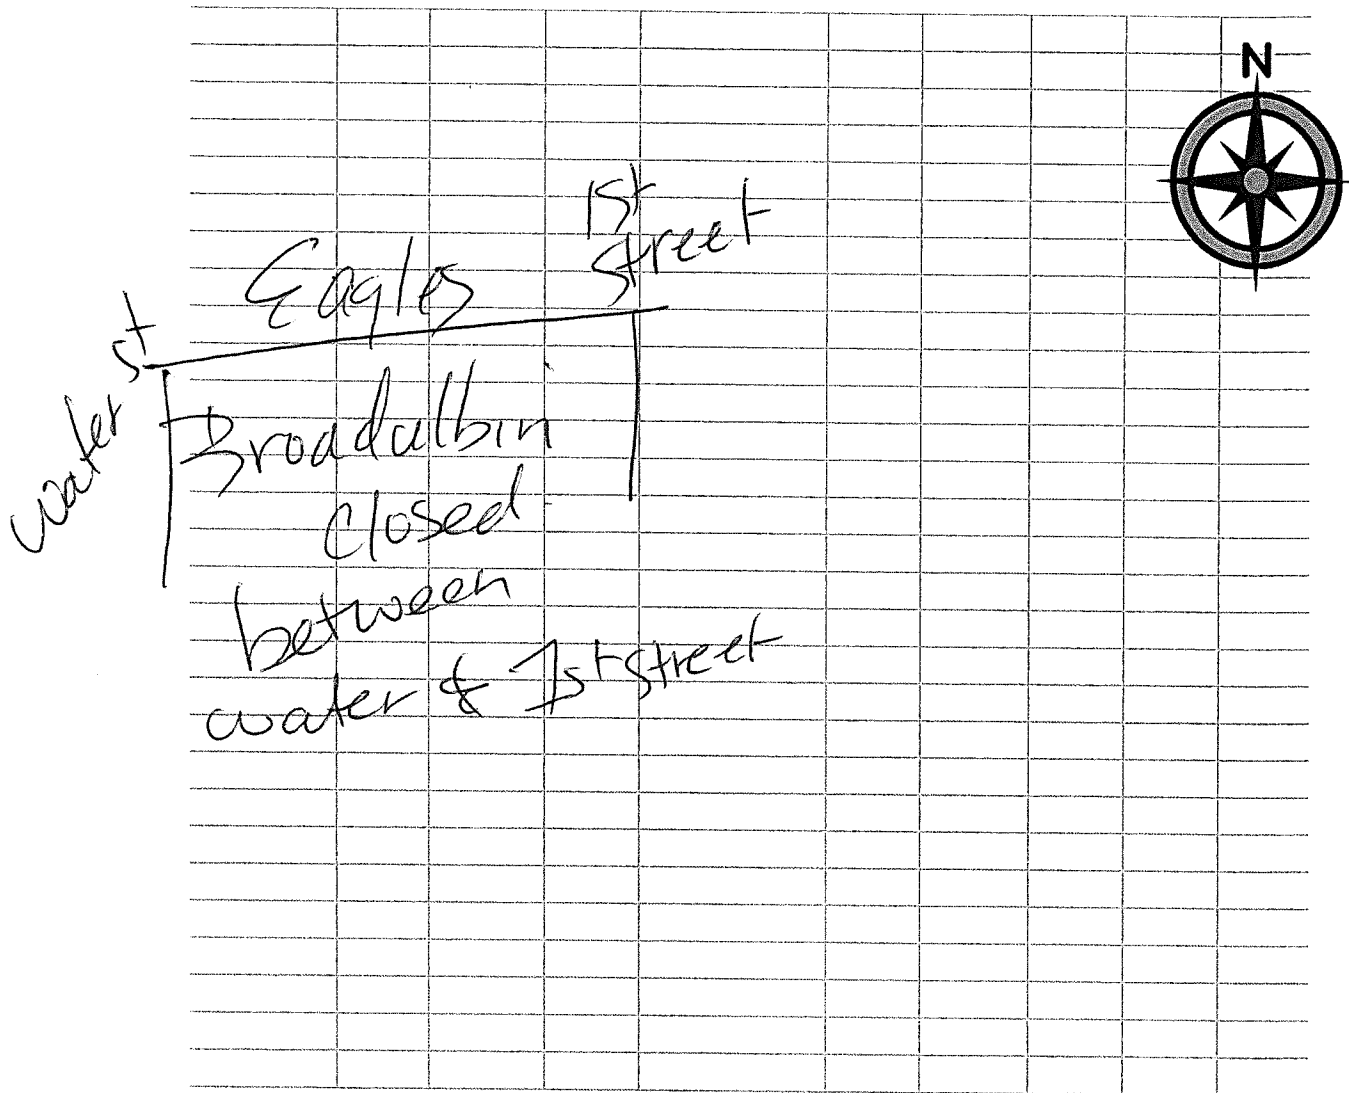 N
1st
street
Eagles
water st
Broadalbin
closed
between
water & 1st street